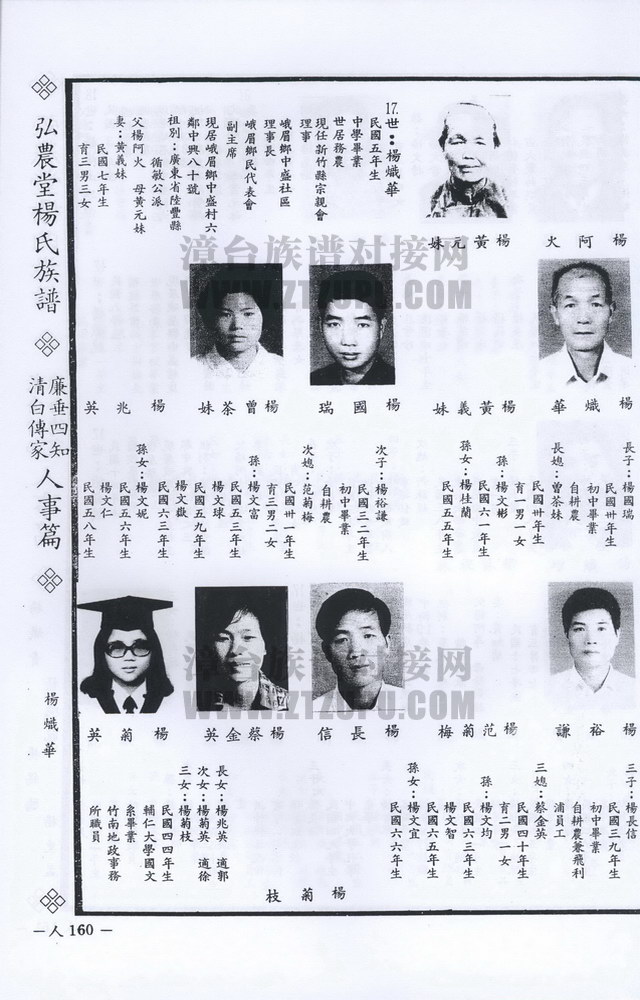 弘農堂楊氏族譜
廉垂四知
清白傳家
人事篇
楊熾華
—人 160 —
楊阿火
楊黃元妹
17.世：楊熾華
民國五年生
中學畢業
世居務農
現任新竹縣宗親會
理事
峨眉鄉中盛社區
理事長
峨眉鄉民代表會
副主席
現居峨眉鄉中盛村六
鄰中興八十號
祖別：廣東省陸豐縣
循敏公派
父楊阿火　母黃元妹
妻：黃義妹
民國七年生
育三男三女
漳台族谱对接网
WWW.ZTZUPU.COM
楊熾華
楊黃義妹
楊國瑞
楊曾茶妹
楊兆英
長子：楊國瑞
民國卅年生
初中畢業
自耕農
長媳：曾茶妹
民國卅年生
育一男一女
孫：楊文彬
民國六一年生
孫女：楊桂蘭
民國五五年生
次子：楊裕謙
民國三二年生
初中畢業
自耕農
次媳：范菊梅
民國卅一年生
育三男二女
孫：楊文富
民國五三年生
楊文球
民國五九年生
楊文嶽
民國六三年生
孫女：楊文妮
民國五六年生
楊文仁
民國五八年生
漳台族谱对接网
WWW.ZTZUPU.COM
楊裕謙
楊范菊梅
楊長信
楊蔡金英
楊菊英
三子：楊長信
民國三九年生
初中畢業
自耕農兼飛利
浦員工
三媳：蔡金英
民國四十年生
育二男一女
孫：楊文均
民國六三年生
楊文智
民國六五年生
孫女：楊文宜
民國六六年生
長女：楊兆英　適郭
次女：楊菊英　適徐
三女：楊菊枝
民國四四年生
輔仁大學國文
系畢業
竹南地政事務
所職員
楊菊枝